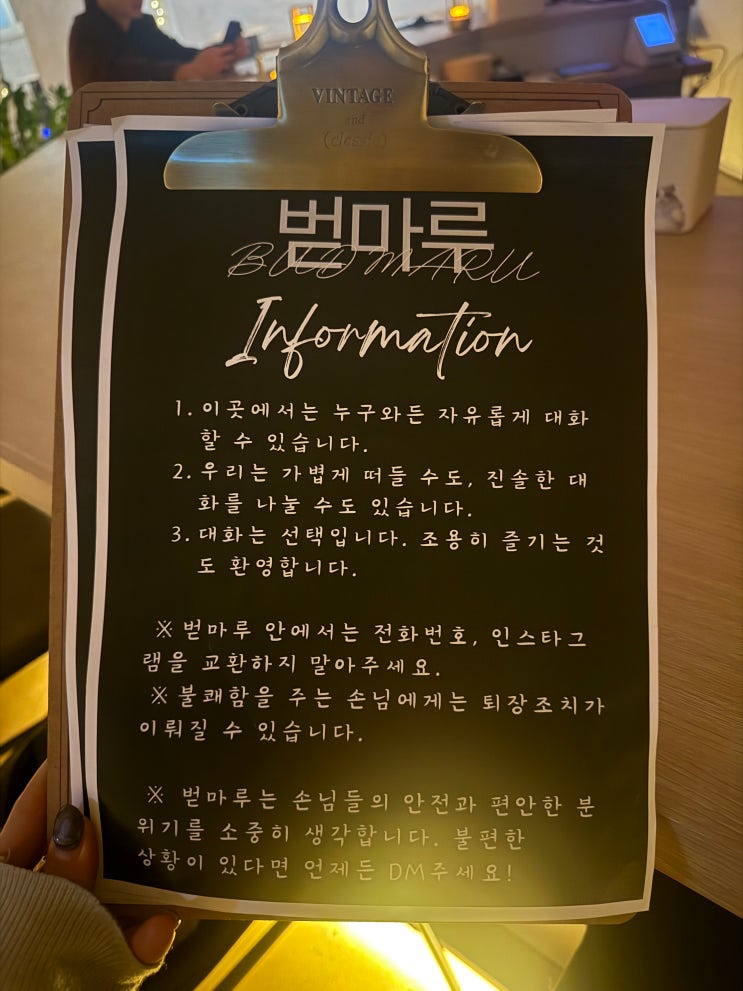 VINTAGE
and
(classic)
벋마루
BUD MARU
Information
1. 이곳에서는 누구와든 자유롭게 대화
할 수 있습니다.
2. 우리는 가볍게 떠들 수도, 진솔한 대
화를 나눌 수도 있습니다.
3. 대화는 선택입니다. 조용히 즐기는 것
도 환영합니다.
※ 벋마루 안에서는 전화번호, 인스타그
램을 교환하지 말아주세요.
※ 불쾌함을 주는 손님에게는 퇴장조치가
이뤄질 수 있습니다.
※ 벋마루는 손님들의 안전과 편안한 분
위기를 소중히 생각합니다. 불편한
상황이 있다면 언제든 DM주세요!